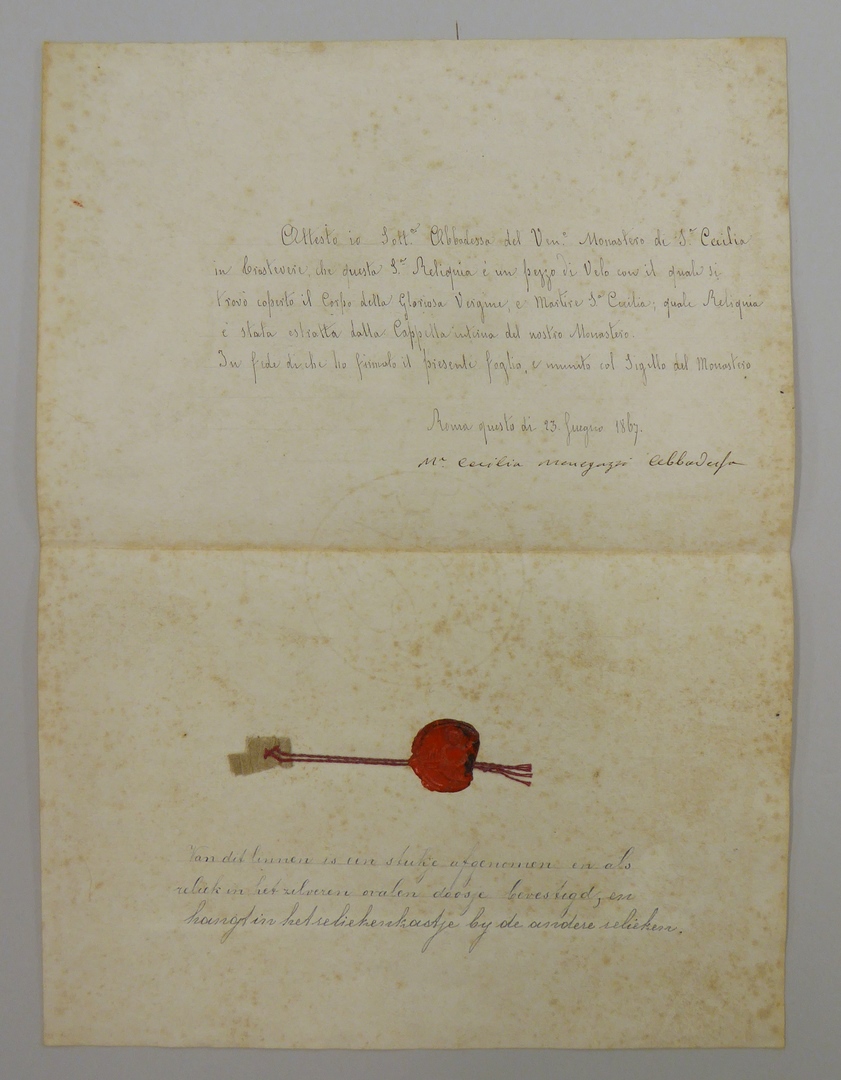 Attesto io Sott.ª Abbadessa del Ven.e Monastero di S.ª Cecilia
in Trastevere, che questa S.ª Reliquia é un pezzo di Velo con il quale si
trovò coperto il Corpo della Gloriosa Vergine, e Martire S.ª Cecilia; quale Reliquia
é stata estratta dalla Cappella interna del nostro Monastero.
In fede di che ho firmato il presente foglio, e munito col Sigillo del Monastero
Roma questo dì 23. Giugno 1867.
M.ª Cecilia Abbadessa
Van dit linnen is een stukje afgenomen en als
reliek in het zilveren ovalen doosje bevestigd, en
hangt in het reliekenkastje by de andere relieken.